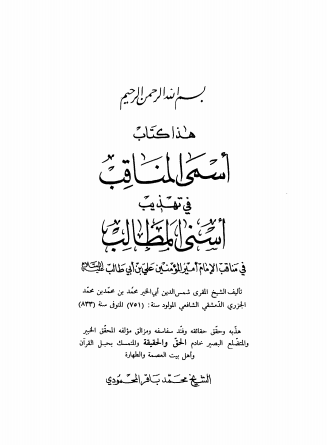 بسم الله الرحمن الرحيم
هذا كتاب
أسمى المناقب
في تهذيب
أسنى المطالب
في مناقب الإمام أمير المؤمنين علي بن أبي طالب عليه السلام
تأليف الشيخ المقرى شمس الدين أبي الخير محمد بن محمد بن محمد
الجزري الدمشقي الشافعي المولود سنة: (٧٥١) المتوفى سنة (٨٣٣)
هذبه وحقق حقائقه وفند سفاسفه ومزالق مؤلفه المحقق الخبير
والمتضلع البصير خادم الحق والحقيقة والمتمسك بحبل القرآن
وأهل بيت العصمة والطهارة
الشيخ محمد باقر المحمودي